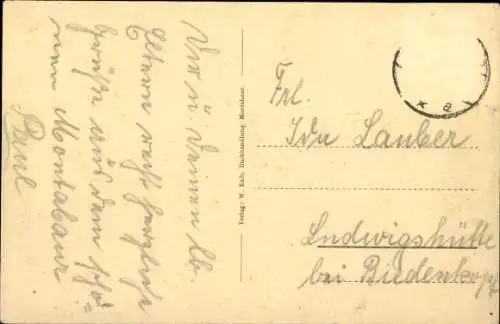 Dir u. Deinen lb.
Eltern recht herzliche
Grüße aus dem schö-
nen Montabaur
Paul
Verlag: W. Kalb, Buchhandlung, Montabaur.
Frl.
Ida Lauber
Ludwigshütte
bei Biedenkopf
* a *